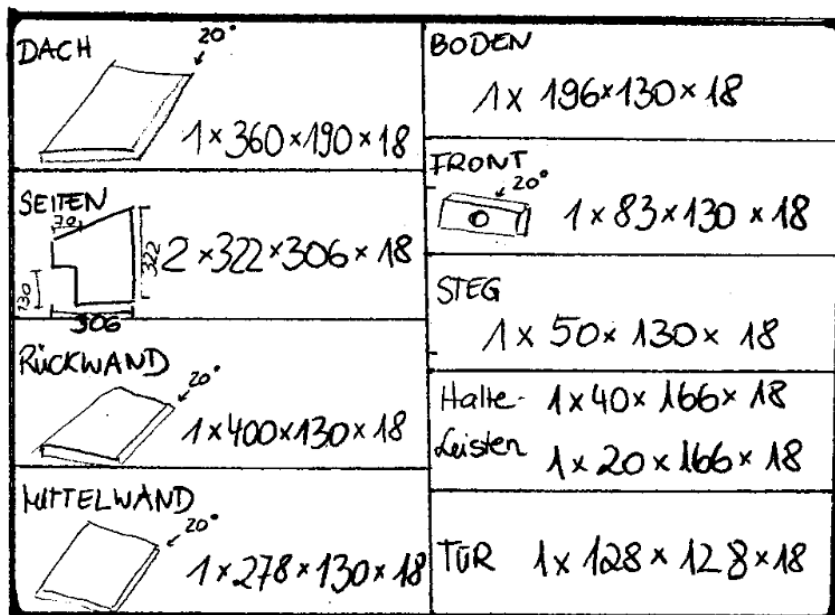 DACH
20°
1 × 360 × 190 × 18
SEITEN
70
322
130
306
2 × 322 × 306 × 18
RÜCKWAND
20°
1 × 400 × 130 × 18
MITTELWAND
20°
1 × 278 × 130 × 18
BODEN
1 × 196 × 130 × 18
FRONT
20°
1 × 83 × 130 × 18
STEG
1 × 50 × 130 × 18
Halte- 1 × 40 × 166 × 18
Leisten 1 × 20 × 166 × 18
TÜR 1 × 128 × 128 × 18